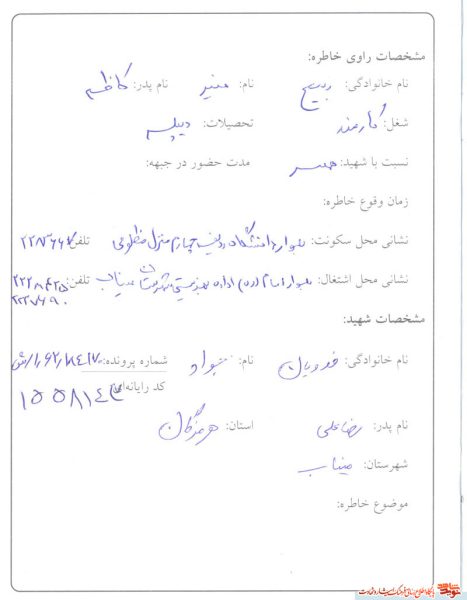 مشخصات راوی خاطره:
نام خانوادگی: ربیع نام: منیر نام پدر: کاظم
شغل: کارمند تحصیلات: دیپلم
نسبت با شهید: همسر مدت حضور در جبهه:
زمان وقوع خاطره:
نشانی محل سکونت: بلوار دانشگاه ردیف چهارم منزل تلفن:
نشانی محل اشتغال: بلوار امام (ره) اداره بهزیستی شهرستان میناب تلفن:
مشخصات شهید:
نام خانوادگی: نام: شماره پرونده:
کد رایانه‌ای: ۱۵۵۸۱۴۳
نام پدر: رضاعلی استان: هرمزگان
شهرستان: میناب
موضوع خاطره: